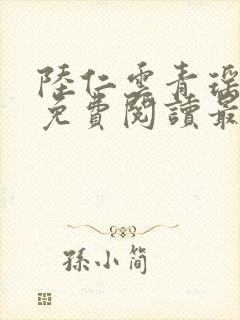 陸仁雲青瑤
免費閱讀最
孫小簡